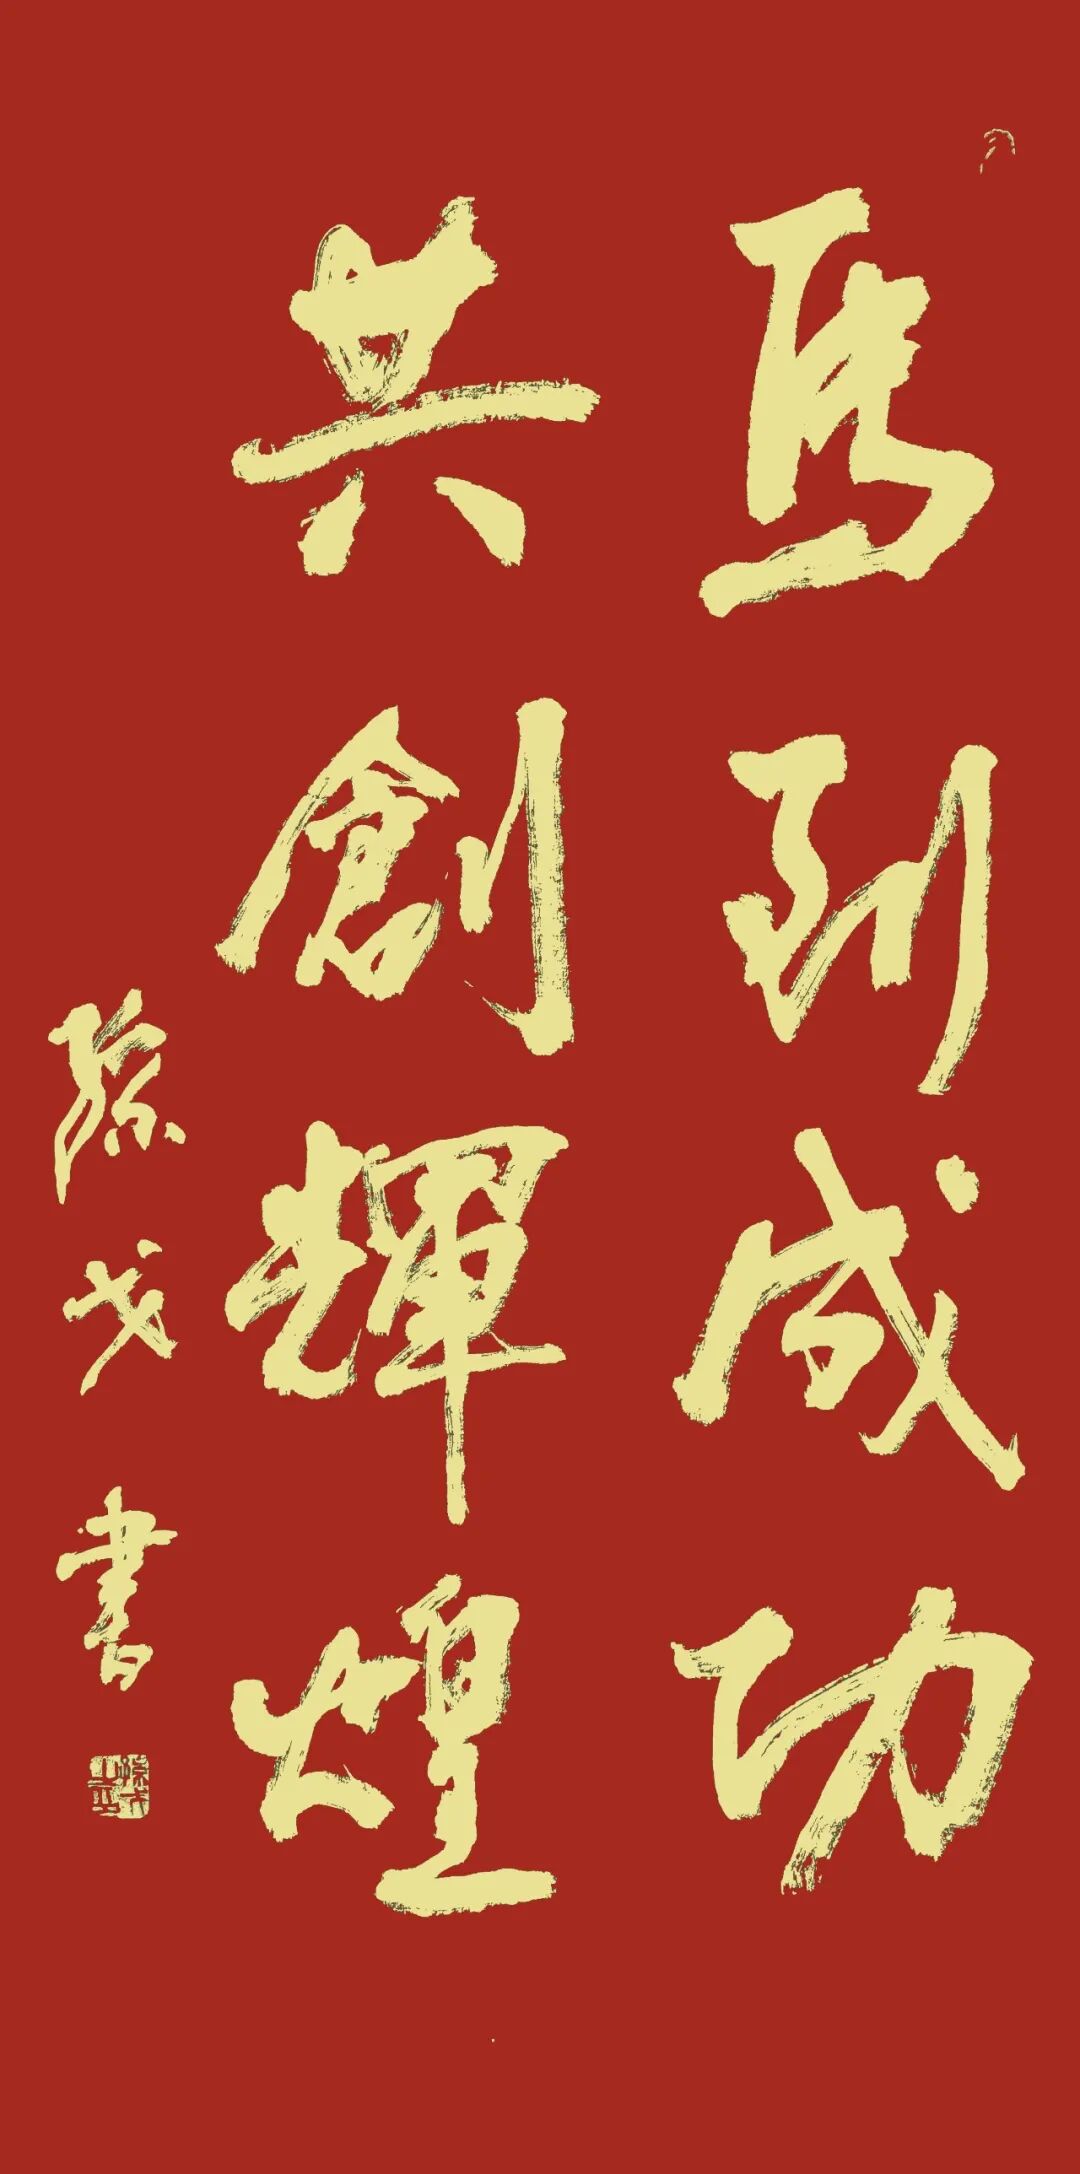 馬到成功
共創輝煌
孫戈書